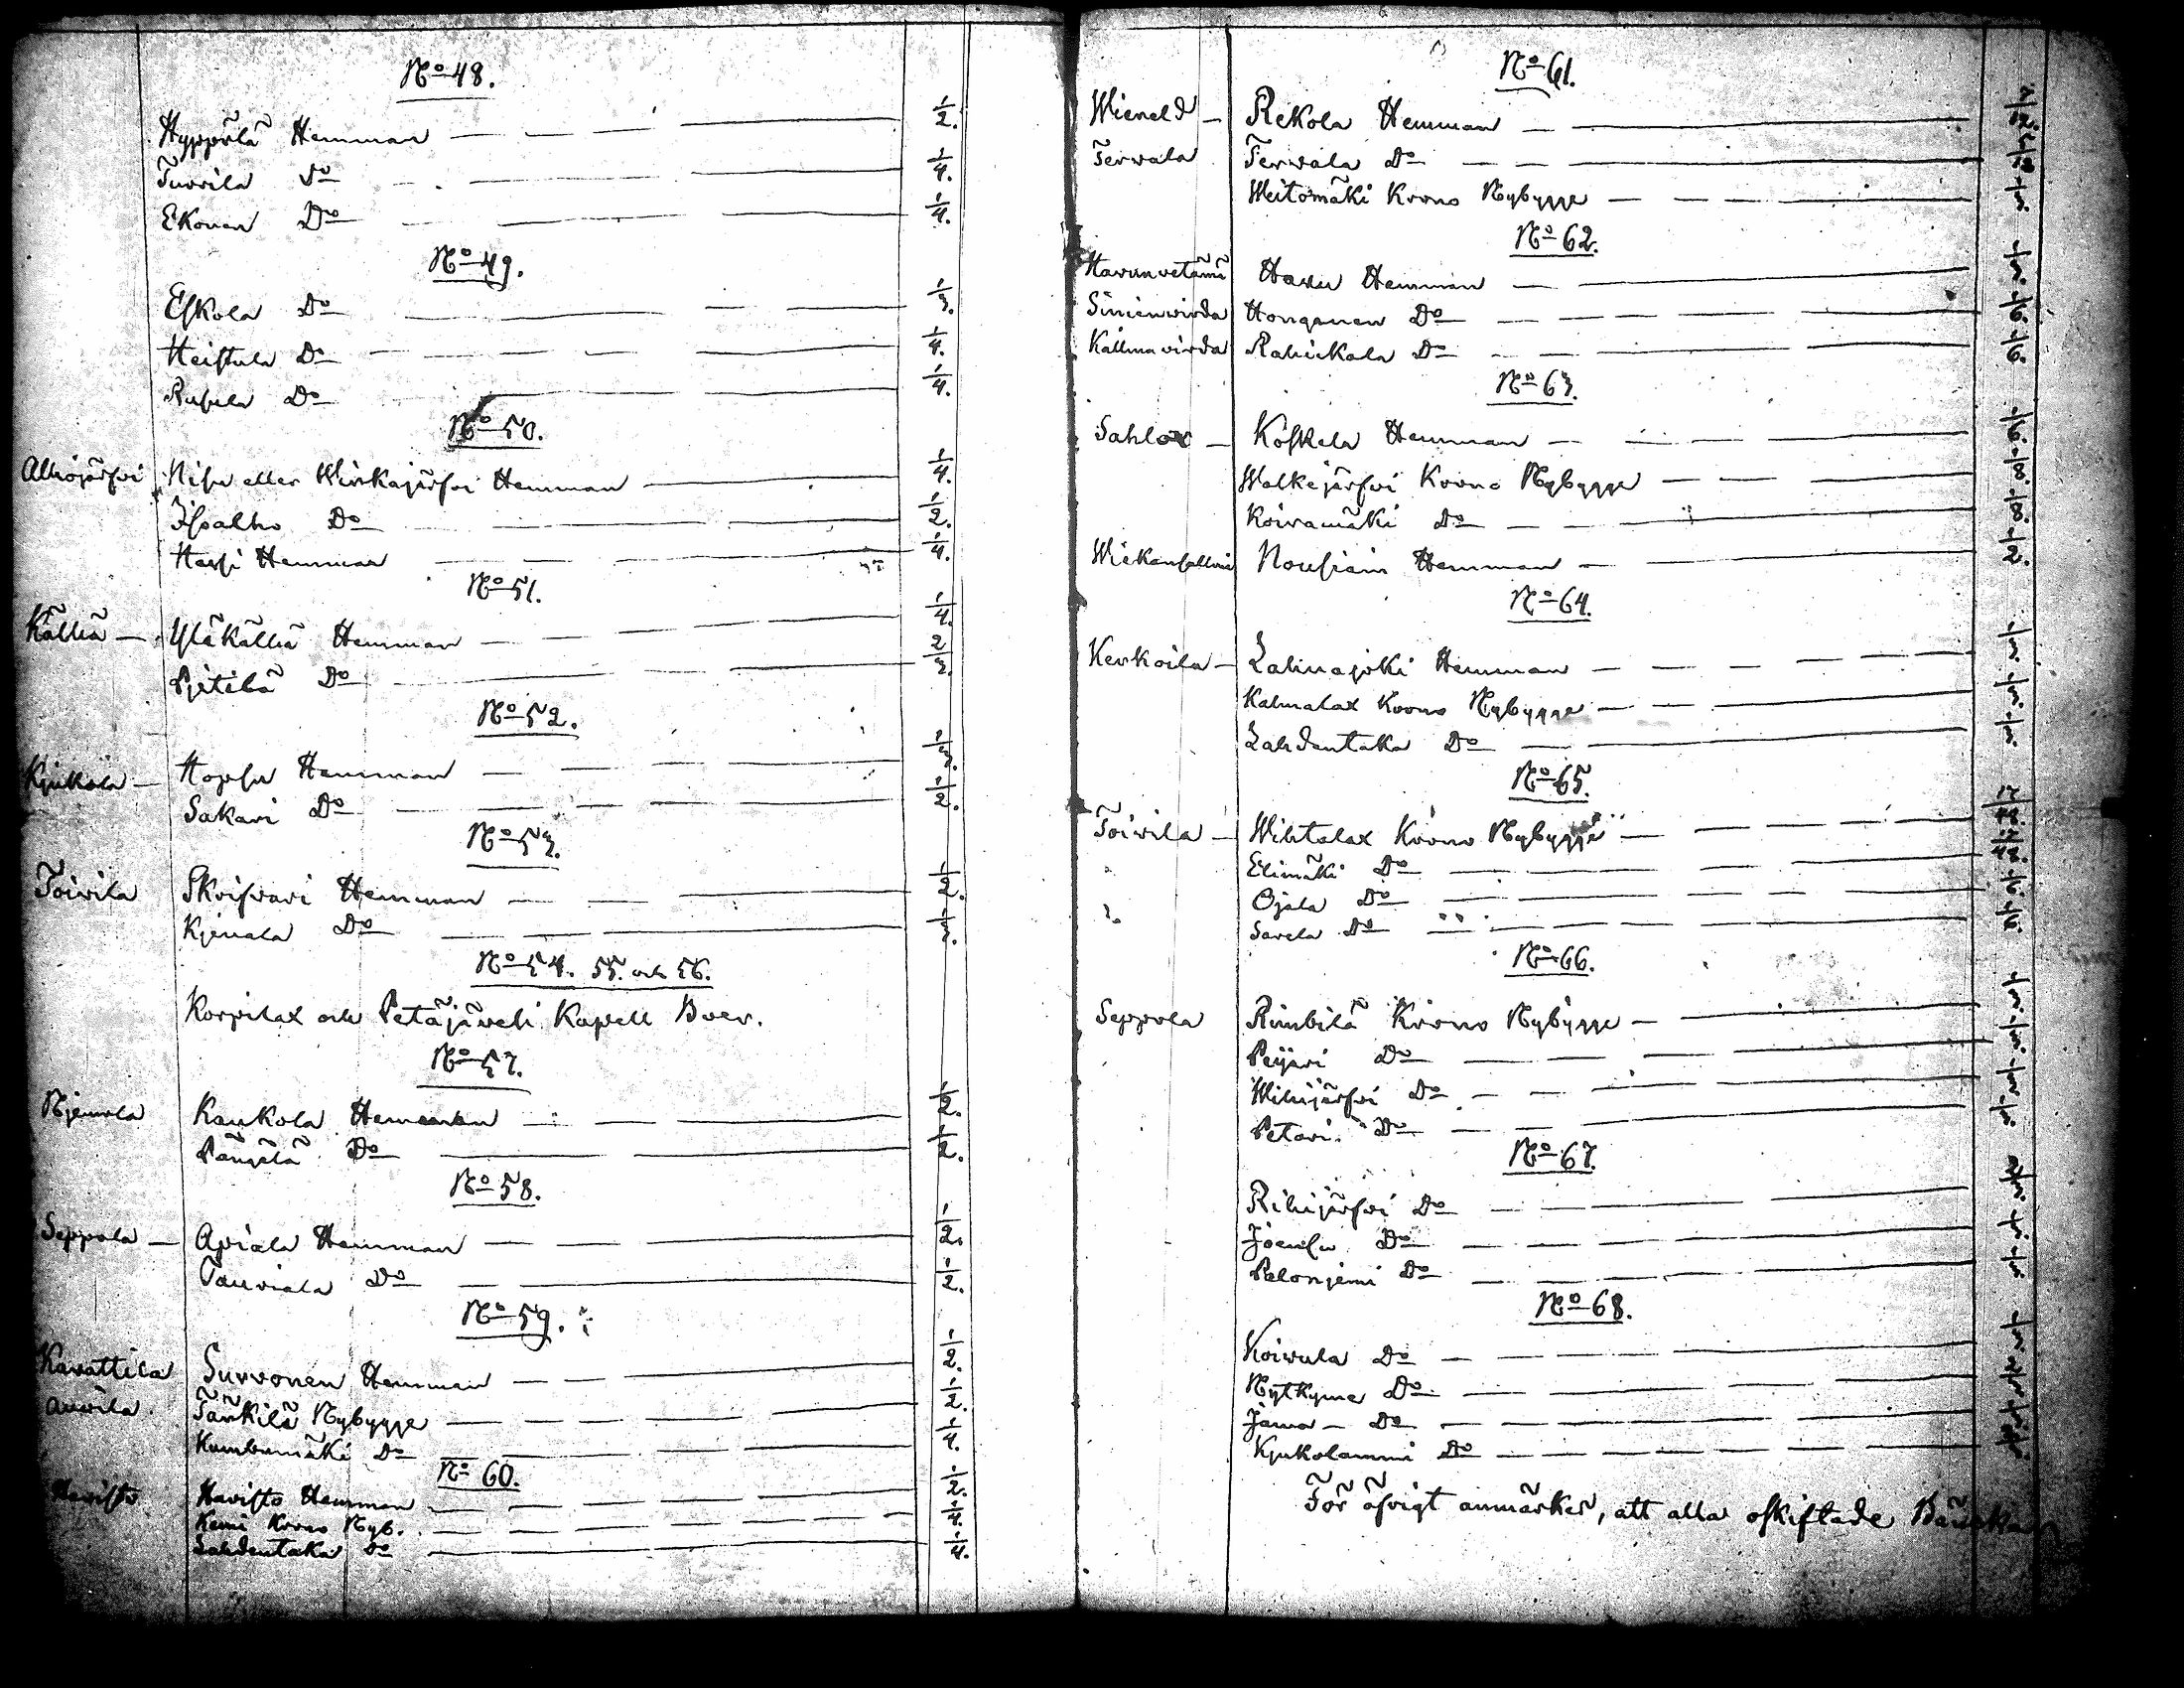 No 48.
Hyppölä Hemman — — — 1/2.
Turrila Do — — — 1/4.
Ekonen Do — — — 1/4.
No 49.
Eskola Do — — — 1/3.
Heistula Do — — — 1/4.
Rusula Do — — — 1/4.
No 50.
Alhojärfvi Nisu eller Wirkajärfvi Hemman — 1/4.
Isoalho Do — — — 1/2.
Harsi Hemman — — — 1/4.
No 51.
Källiä — Yläkälliä Hemman — — — 1/4.
Pjetilä Do — — — 2/3.
No 52.
Kjukola — Hopsu Hemman — — — 1/3.
Sakari Do — — — 1/2.
No 53.
Toivila Skrifvari Hemman — — — 1/2.
Kjenala Do — — — 1/3.
No 54. 55. och 56.
Korpilax och Petäjäveli Kapell Boer.
No 57.
Njemola Kaukola Hemman — — — 1/2.
Pängälä Do — — — 1/2.
No 58.
Seppola — Apiala Hemman — — — 1/2.
Tauriala Do — — — 1/2.
No 59.
Kavattila Survonen Hemman — — — 1/2.
Auvila. Tänkilä Nybygge — — — 1/2.
Kumbumäki Do — — — 1/4.
No 60.
Havisto Havisto Hemman — — — 1/2.
Kemi Krono Nyb. — — — 1/4.
Lahdentaka Do — — — 1/4.
No 61.
Rekola Hemman — —
Terwala Terwala Do — — —
Weitomäki Krono Nybygge — — — 1/3.
No 62.
Havunvetämä Havu Hemman — — 1/3.
Sinienvirda Honganen Do — — — 1/6.
Källmavirda Rahikala Do — — — 1/6.
No 63.
Sahlox — Koskela Hemman — — — 1/6.
Walkejärfvi Krono Nybygge — — — 1/8.
Koivamäki Do — — — 1/8.
Nousiain Hemman — — 1/2.
No 64.
Kerkoila — Lalmajoki Hemman — — — 1/3.
Kalmalax Krono Nybygge — — — 1/3.
Lahdentaka Do — — 1/3.
No 65.
Toivila — Wihtalax Krono Nybygge — — —
Elimäki Do — — —
Ojala Do — — — 1/6.
Sarela Do — — — 1/6.
No 66.
Seppola Rimbilä Krono Nybygge — — 1/3.
Peijari Do — — — 1/3.
Wihijärfvi Do — — — 1/3.
Petari Do — — — 1/3.
No 67.
Rihijärfvi Do — — —
Joensu Do — — —
Palonjemi Do — — — 1/3.
No 68.
Koivula Do — — — 1/3.
Nytkyme Do — — —
Jama — Do — — —
Kjukolammi Do — — —
För öfvrigt anmärkes, att alla oskiftade Bänkar